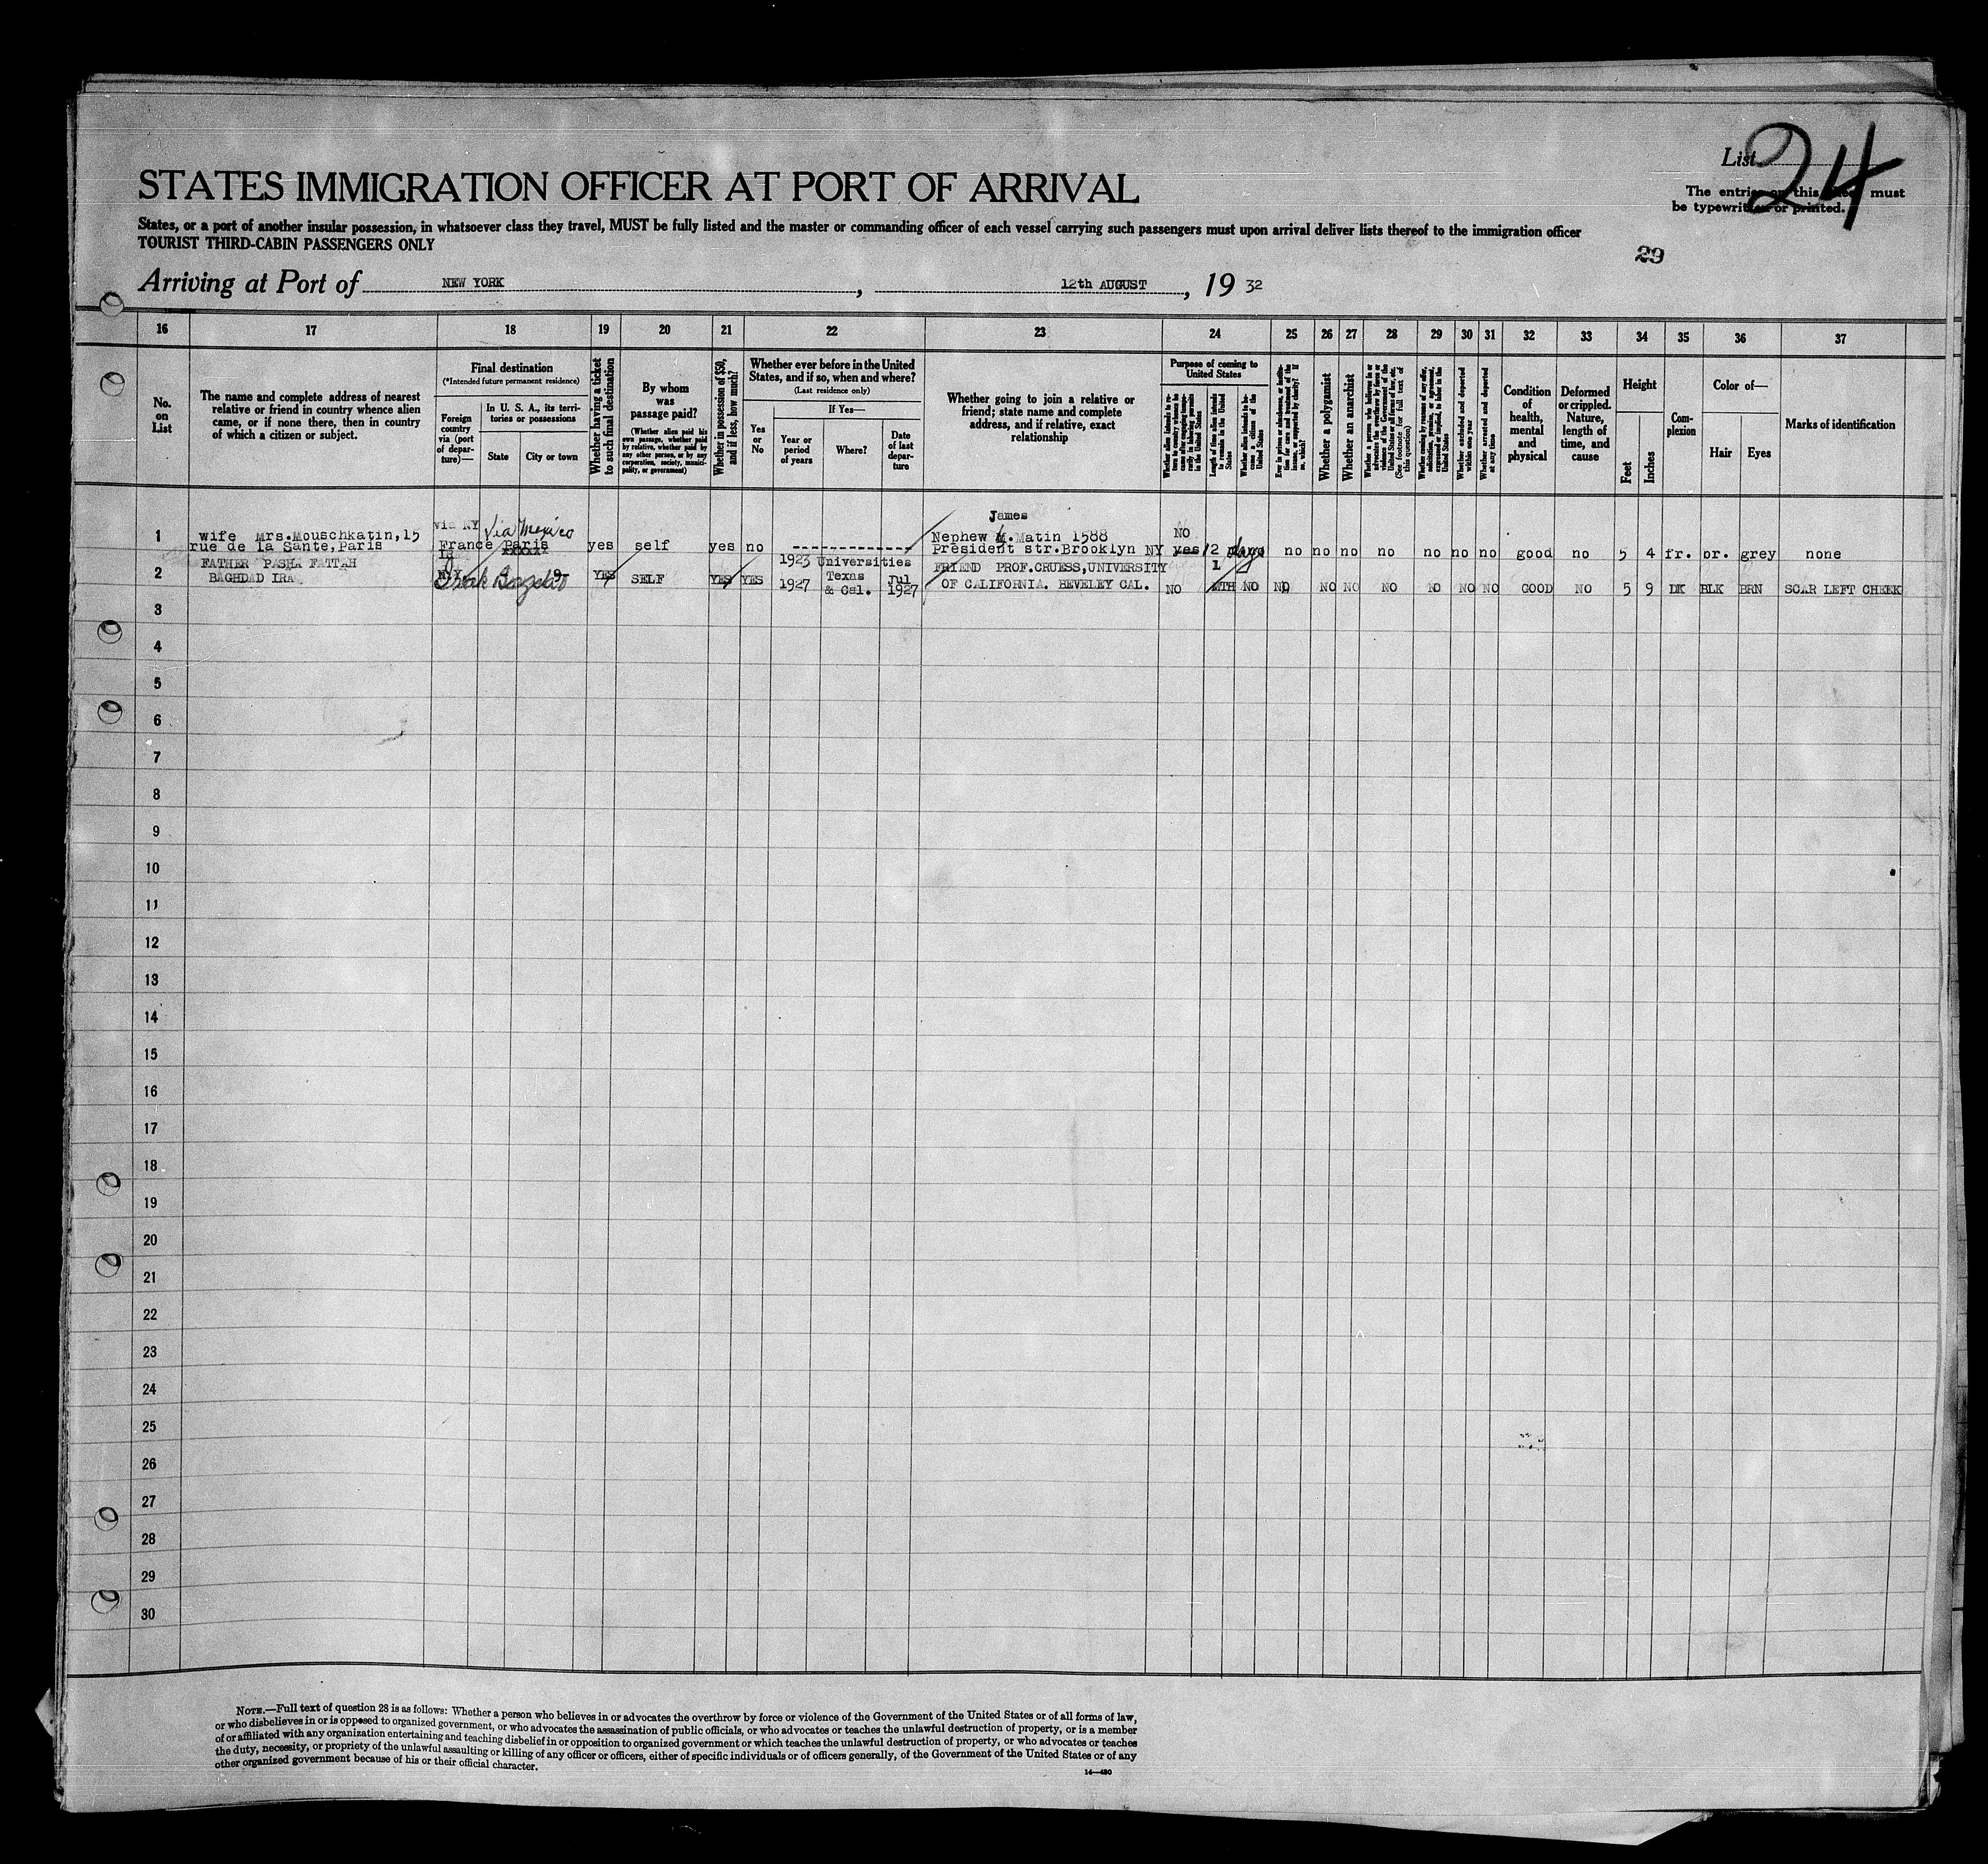 List 24
STATES IMMIGRATION OFFICER AT PORT OF ARRIVAL
The entries on this sheet must
be typewritten or printed.
States, or a port of another insular possession, in whatsoever class they travel, MUST be fully listed and the master or commanding officer of each vessel carrying such passengers must upon arrival deliver lists thereof to the immigration officer
TOURIST THIRD-CABIN PASSENGERS ONLY
29
Arriving at Port of NEW YORK, 12th AUGUST, 19 32
16 17 18 19 20 21 22 23 24 25 26 27 28 29 30 31 32 33 34 35 36 37
No.
on
List
The name and complete address of nearest
relative or friend in country whence alien
came, or if none there, then in country
of which a citizen or subject.
Final destination
(*Intended future permanent residence)
Foreign
country
via (port
of depar-
ture)—
In U. S. A., its terri-
tories or possessions
State
City or town
Whether having a ticket
to such final destination
By whom
was
passage paid?
(Whether alien paid his
own passage, whether paid
by relative, whether paid by
any other person, or by any
corporation, society, munici-
pality, or government)
Whether in possession of $50,
and if less, how much?
Whether ever before in the United
States, and if so, when and where?
(Last residence only)
Yes
or
No
If Yes—
Year or
period
of years
Where?
Date
of last
depar-
ture
Whether going to join a relative or
friend; state name and complete
address, and if relative, exact
relationship
Purpose of coming to
United States
Length of time alien intends
to remain in the United
States
Whether alien intends to be-
come a citizen of the
United States
Whether a polygamist
Whether an anarchist
(See footnote for full text of
this question)
Whether excluded and deported
within one year
Whether arrested and deported
at any time
Condition
of
health,
mental
and
physical
Deformed
or crippled.
Nature,
length of
time, and
cause
Height
Feet
Inches
Com-
plexion
Color of—
Hair
Eyes
Marks of identification
James
via NY Via Mexico NO
1 wife Mrs.Mouschkatin,15 Nephew M.Matin 1588
rue de la Sante,Paris France Paris yes self yes no ------------ President str.Brooklyn NY yes 2 days no no no no no no no good no 5 4 fr. br. grey none
2 FATHER PASHA FATTAH 1923 Universities FRIEND PROF.CRUESS,UNIVERSITY 1
BAGHDAD IRA YES SELF YES YES 1927 Texas & Cal. Jul 1927 OF CALIFORNIA. BEVELEY CAL. NO MTH NO NO NO NO NO NO NO NO GOOD NO 5 9 DK BLK BRN SCAR LEFT CHEEK
3
4
5
6
7
8
9
10
11
12
13
14
15
16
17
18
19
20
21
22
23
24
25
26
27
28
29
30
NOTE.—Full text of question 28 is as follows: Whether a person who believes in or advocates the overthrow by force or violence of the Government of the United States or of all forms of law,
or who disbelieves in or is opposed to organized government, or who advocates the assassination of public officials, or who advocates or teaches the unlawful destruction of property, or is a member
of or affiliated with any organization entertaining and teaching disbelief in or opposition to organized government or which teaches the unlawful destruction of property, or who advocates or teaches
the duty, necessity, or propriety of the unlawful assaulting or killing of any officer or officers, either of specific individuals or of officers generally, of the Government of the United States or of any
other organized government because of his or their official character.
14—430